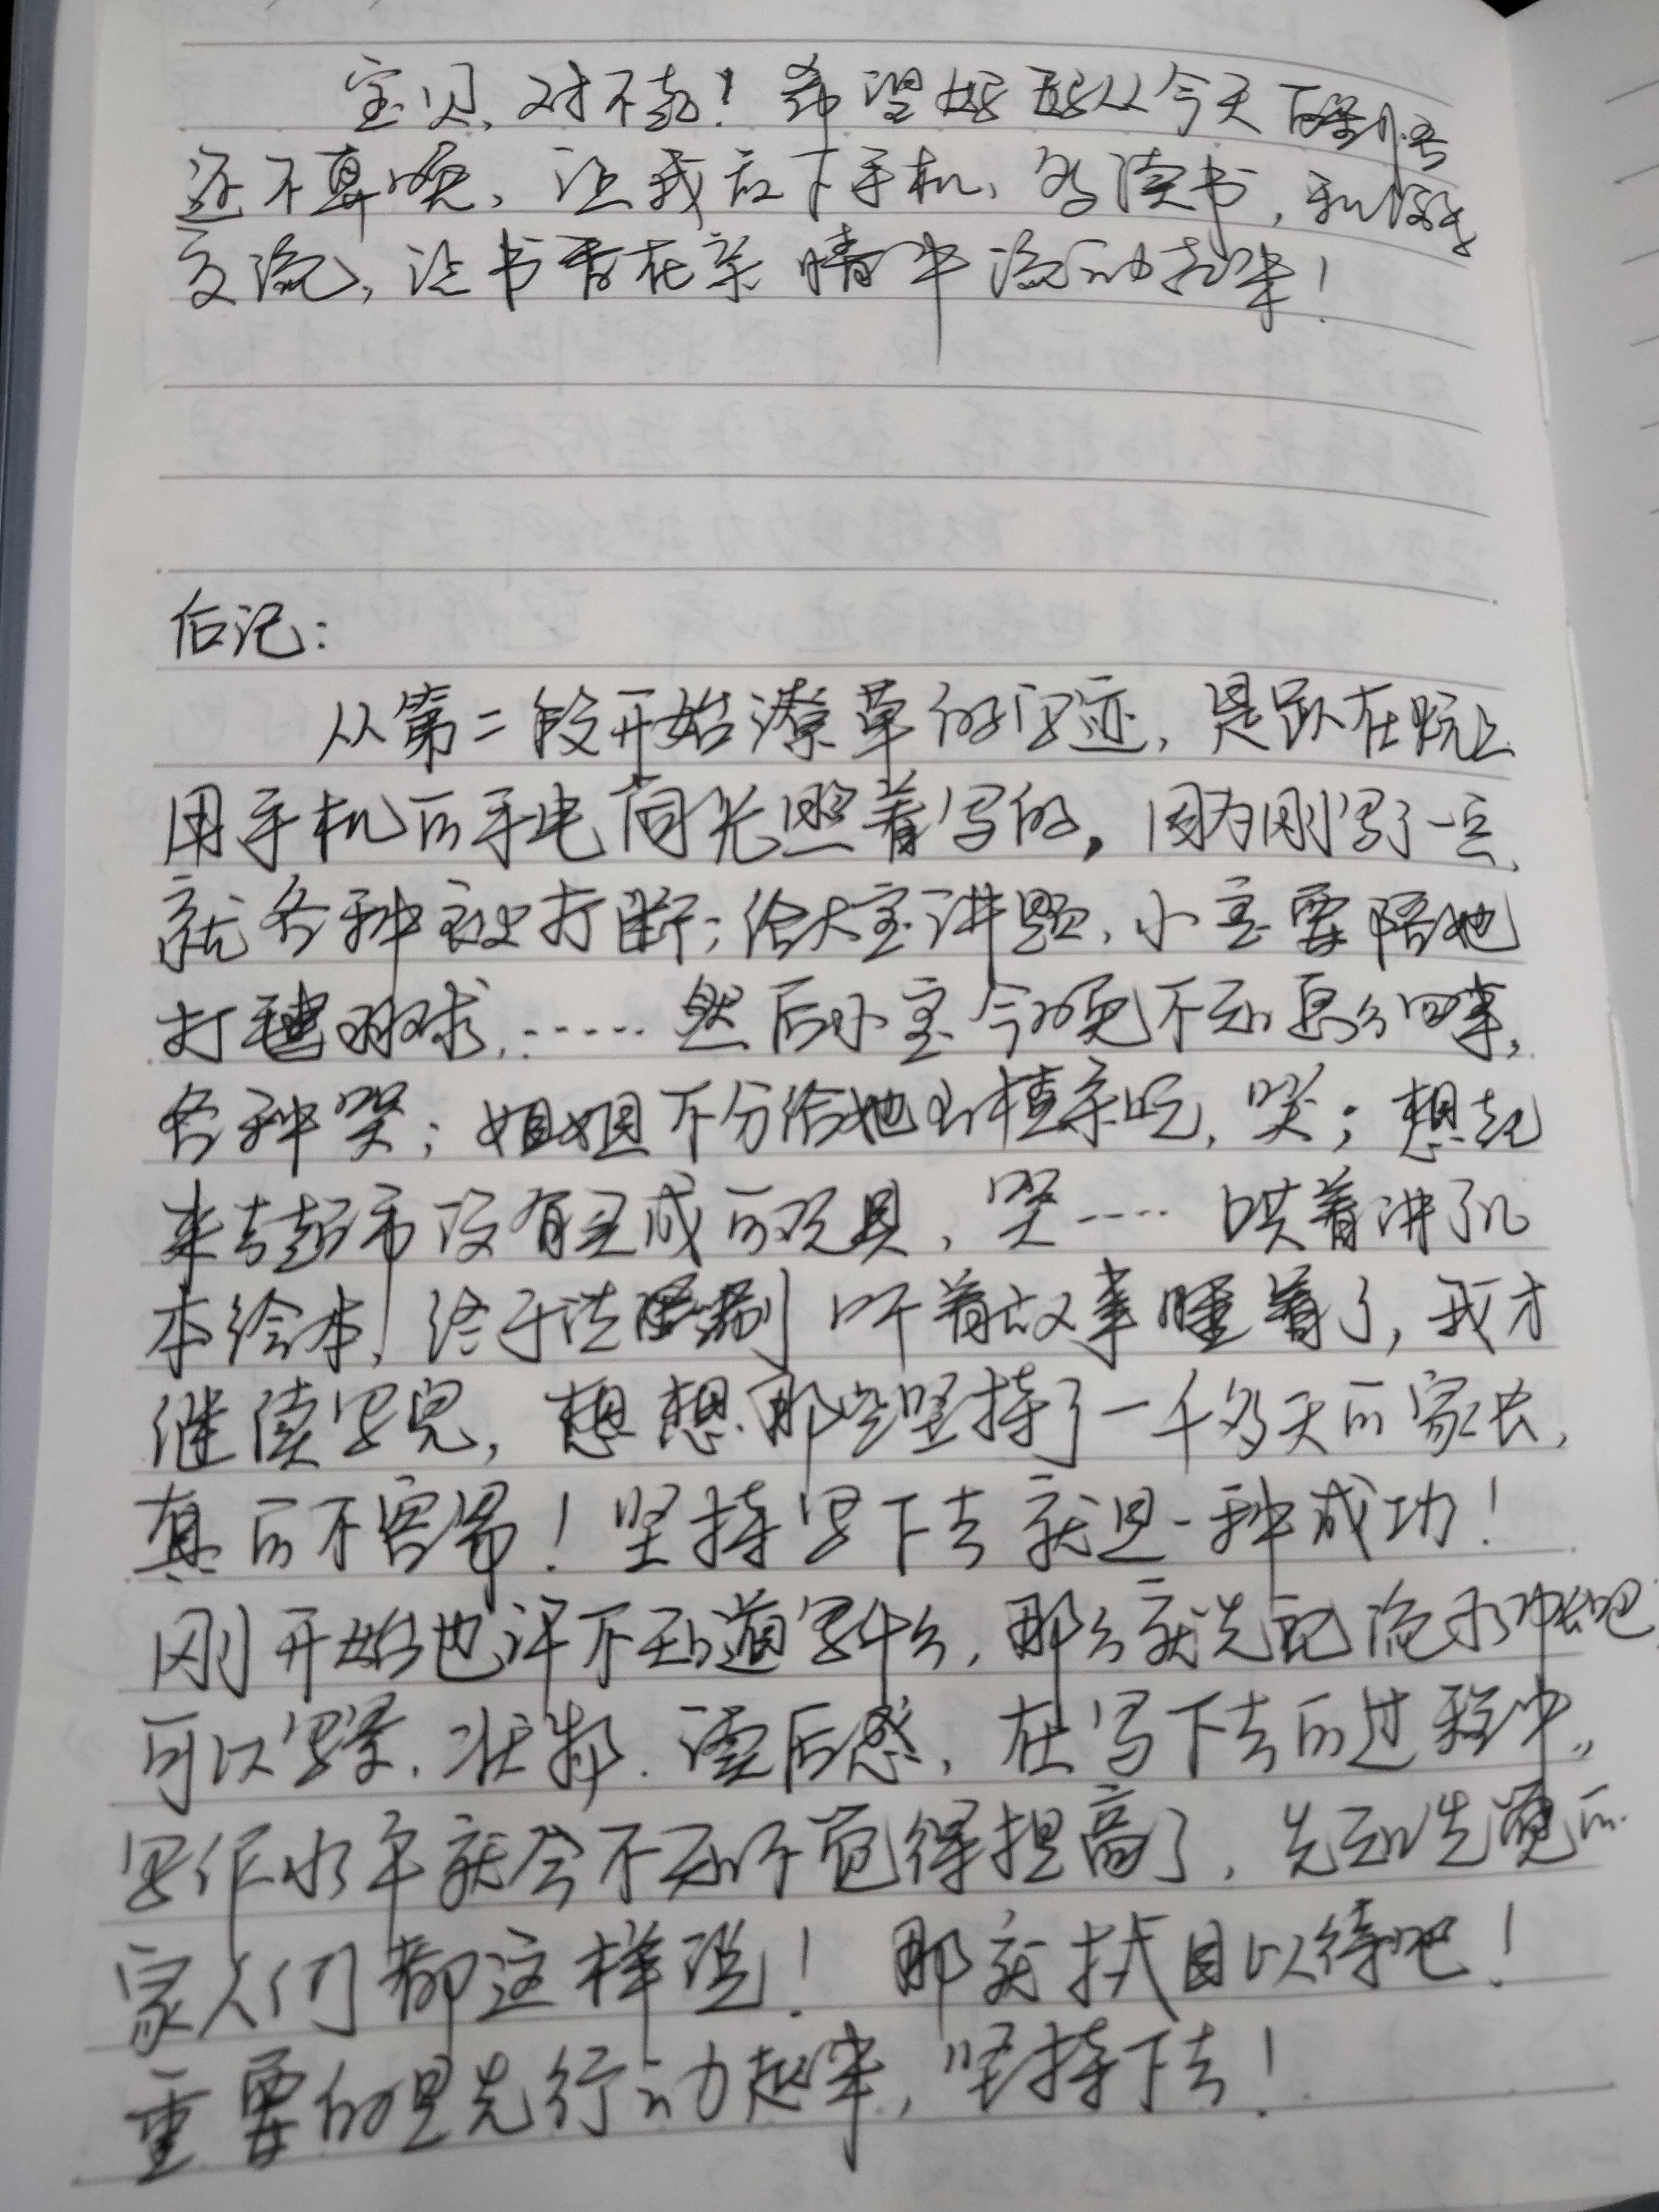 宝贝,对不起!希望妈妈从今天
还不算晚,让我放下手机,多读书,和你
交流,让书香在亲情中流动起来!
后记:
从第二段开始潦草的字迹,是趴在炕上
用手机的手电筒光照着写的,因为刚写了一点,
就各种被打断;给大宝讲题,小宝要陪她
打羽球,……然后小宝今晚不知怎么回事,
各种哭;姐姐不分给她山楂条吃,哭;想起
来去超市没有买成的玩具,哭……哄着讲了几
本绘本,终于 听着故事睡着了,我才
继续写完,想想那些坚持了一千多天的家长,
真的不容易!坚持写下去就是一种成功!
刚开始也许不知道写什么,那么就先记流水帐吧
可以写景、状物、读后感,在写下去的过程中,
写作水平就会不知不觉得提高了,先知先觉的
家人们都这样说!那就拭目以待吧!
重要的是先行动起来,坚持下去!